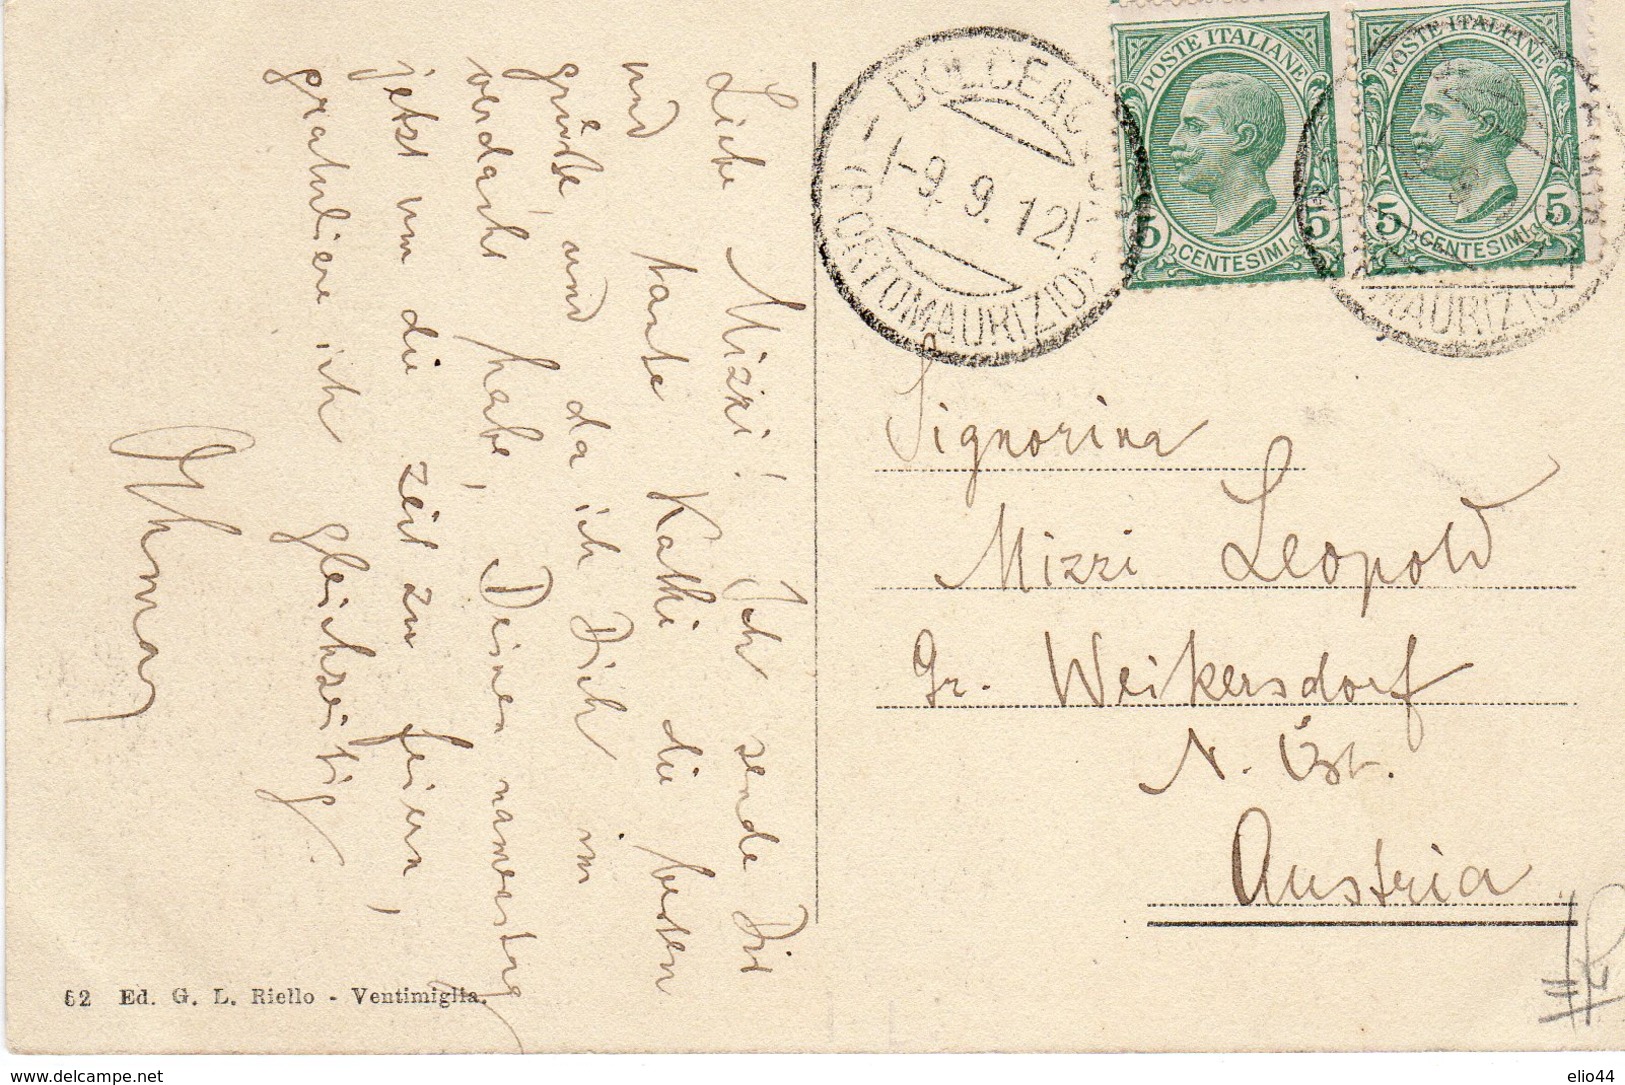 Liebe Mizzi! Ich sende Dir
und tante Kathi die besten
grüße und da ich Dich im
verdacht habe, Deinen namenstag
jetzt um die zeit zu feiern,
gratuliere ich gleichzeitig.
Othmar
DOLCEAC
(PORTOMAURIZIO)
-9.9.12
POSTE ITALIANE
5 CENTESIMI 5
POSTE ITALIANE
5 CENTESIMI 5
MAURIZIO
Signorina
Mizzi Leopold
Gr. Weikersdorf
N. Öst.
Austria
62 Ed. G. L. Riello - Ventimiglia.
www.delcampe.net
elio44